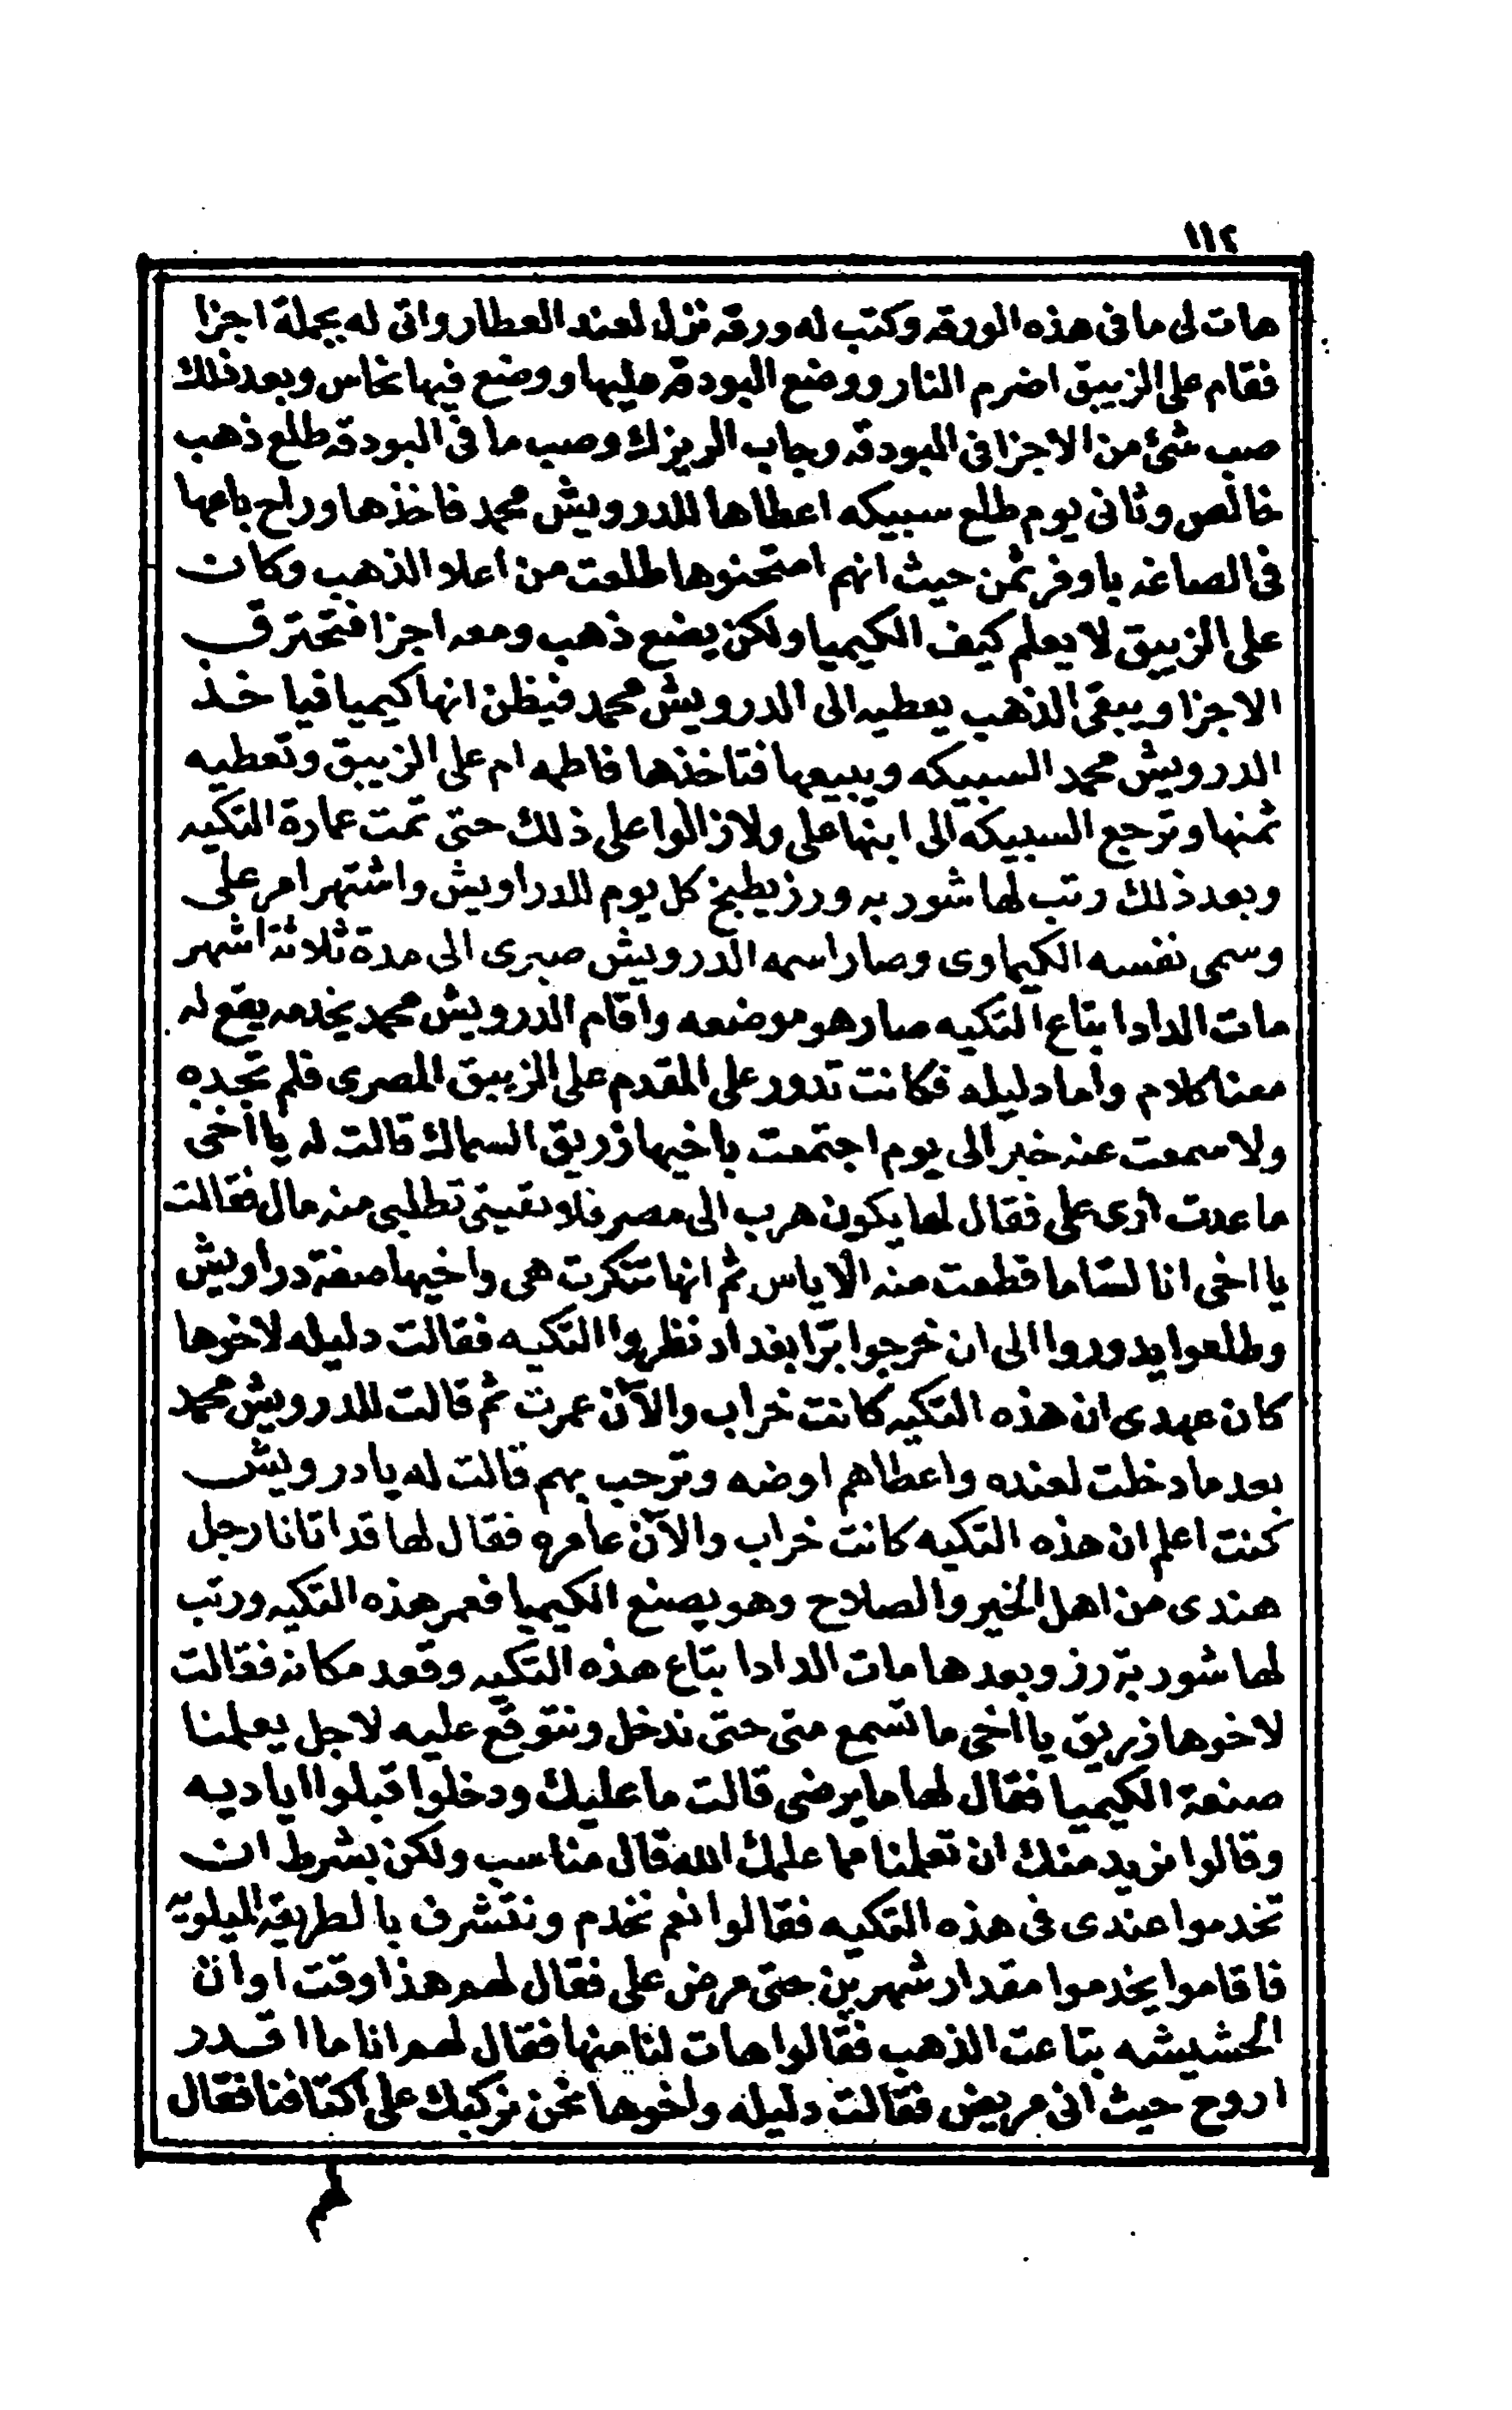 ١١٢
هات لى ما فى هذه الورقه وكتب له ورقه نزل لعند العطار واتى له بجملة اجزا
فقام على الزيبق اضرم النار ووضع البودقه عليها ووضع فيها نحاس وبعد ذلك
صب شئ من الاجزا فى البودقه وجاب الريزك وصب ما فى البودقه طلع ذهب
خالص وثانى يوم طلع سبيكه اعطاها للدرويش محمد فاخذها وراح باعها
فى الصاغه باوفر ثمن حيث انهم امتحنوها طلعت من اعلا الذهب وكان
على الزيبق لا يعلم كيف الكيميا ولكن يضع ذهب ومعه اجزا فتحترق
الاجزا ويبقى الذهب يعطيه الى الدرويش محمد فيظن انها كيميا فياخذ
الدرويش محمد السبيكه ويبيعها فتاخذها فاطمه ام على الزيبق وتعطيه
ثمنها وترجع السبيكه الى ابنها على ولازالوا على ذلك حتى تمت عمارة التكيه
وبعد ذلك رتب لها شوربه ورز يطبخ كل يوم للدراويش واشتهر امر على
وسمى نفسه الكيماوى وصار اسمه الدرويش صبرى الى مدة ثلاثة اشهر
مات الدادا بتاع التكيه صار هو موضعه واقام الدرويش محمد يخدمه يقع له
معنا كلام واما دليله فكانت تدور على المقدم على الزيبق المصرى فلم تجده
ولا سمعت عنه خبر الى يوم اجتمعت باخيها زريق السماك قالت له يا اخى
ما عدت أرى على فقال لها يكون هرب الى مصر فلا بقيتى تطلبى منه مال فقالت
يا اخى انا لسّا ما قطعت منه الاياس ثم انها تنكرت هى واخيها صفة دراويش
وطلعوا يدوروا الى ان خرجوا برّا بغداد نظروا التكيه فقالت دليله لاخوها
كان عهدى ان هذه التكيه كانت خراب والآن عمرت ثم قالت للدرويش محمد
بعد ما دخلت لعنده واعطاهم اوضه وترحب بهم قالت له يا درويش
كنت اعلم ان هذه التكيه كانت خراب والآن عامره فقال لها قد اتانا رجل
هندى من اهل الخير والصلاح وهو يصنع الكيميا فعمر هذه التكيه ورتب
لها شوربة رز وبعدها مات الدادا بتاع هذه التكيه وقعد مكانه فقالت
لاخوها زريق يا اخى ما تسمع متى حتى ندخل ونتوقع عليه لاجل يعلمنا
صنعة الكيميا فقال لها ما يرضى قالت ما عليك ودخلوا قبلوا اياديه
وقالوا نريد منك ان تعلمنا مما علمك الله قال مناسب ولكن بشرط ان
تخدموا عندى فى هذه التكيه فقالوا نعم نخدم ونتشرف بالطريقه الميلويه
فاقاموا يخدموا مقدار شهرين حتى مرض على فقال لهم هذا وقت اوان
الحشيشه بتاعت الذهب فقالوا هات لنا منها فقال لهم انا ما اقدر
اروح حيث انى مريض فقالت دليله واخوها نحن نركبك على اكتافنا فقال